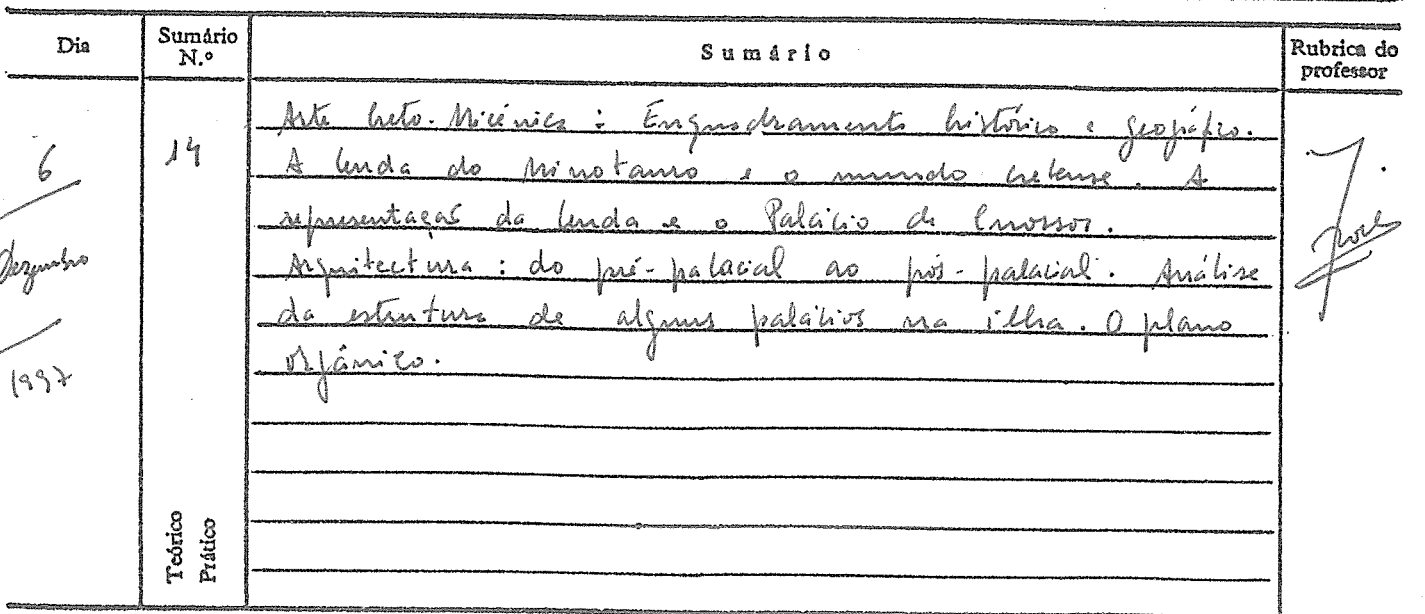 Dia
Sumário N.º
Sumário
Rubrica do professor
6
Dezembro
1997
14
Arte Creto-Micénica : Enquadramento histórico e geográfico.
A lenda do Minotauro e o mundo cretense. A
representação da lenda e o Palácio de Cnossos.
Arquitectura : do pré-palacial ao pós-palacial. Análise
da estrutura de alguns palácios na ilha. O plano
orgânico.
Teórico
Prático